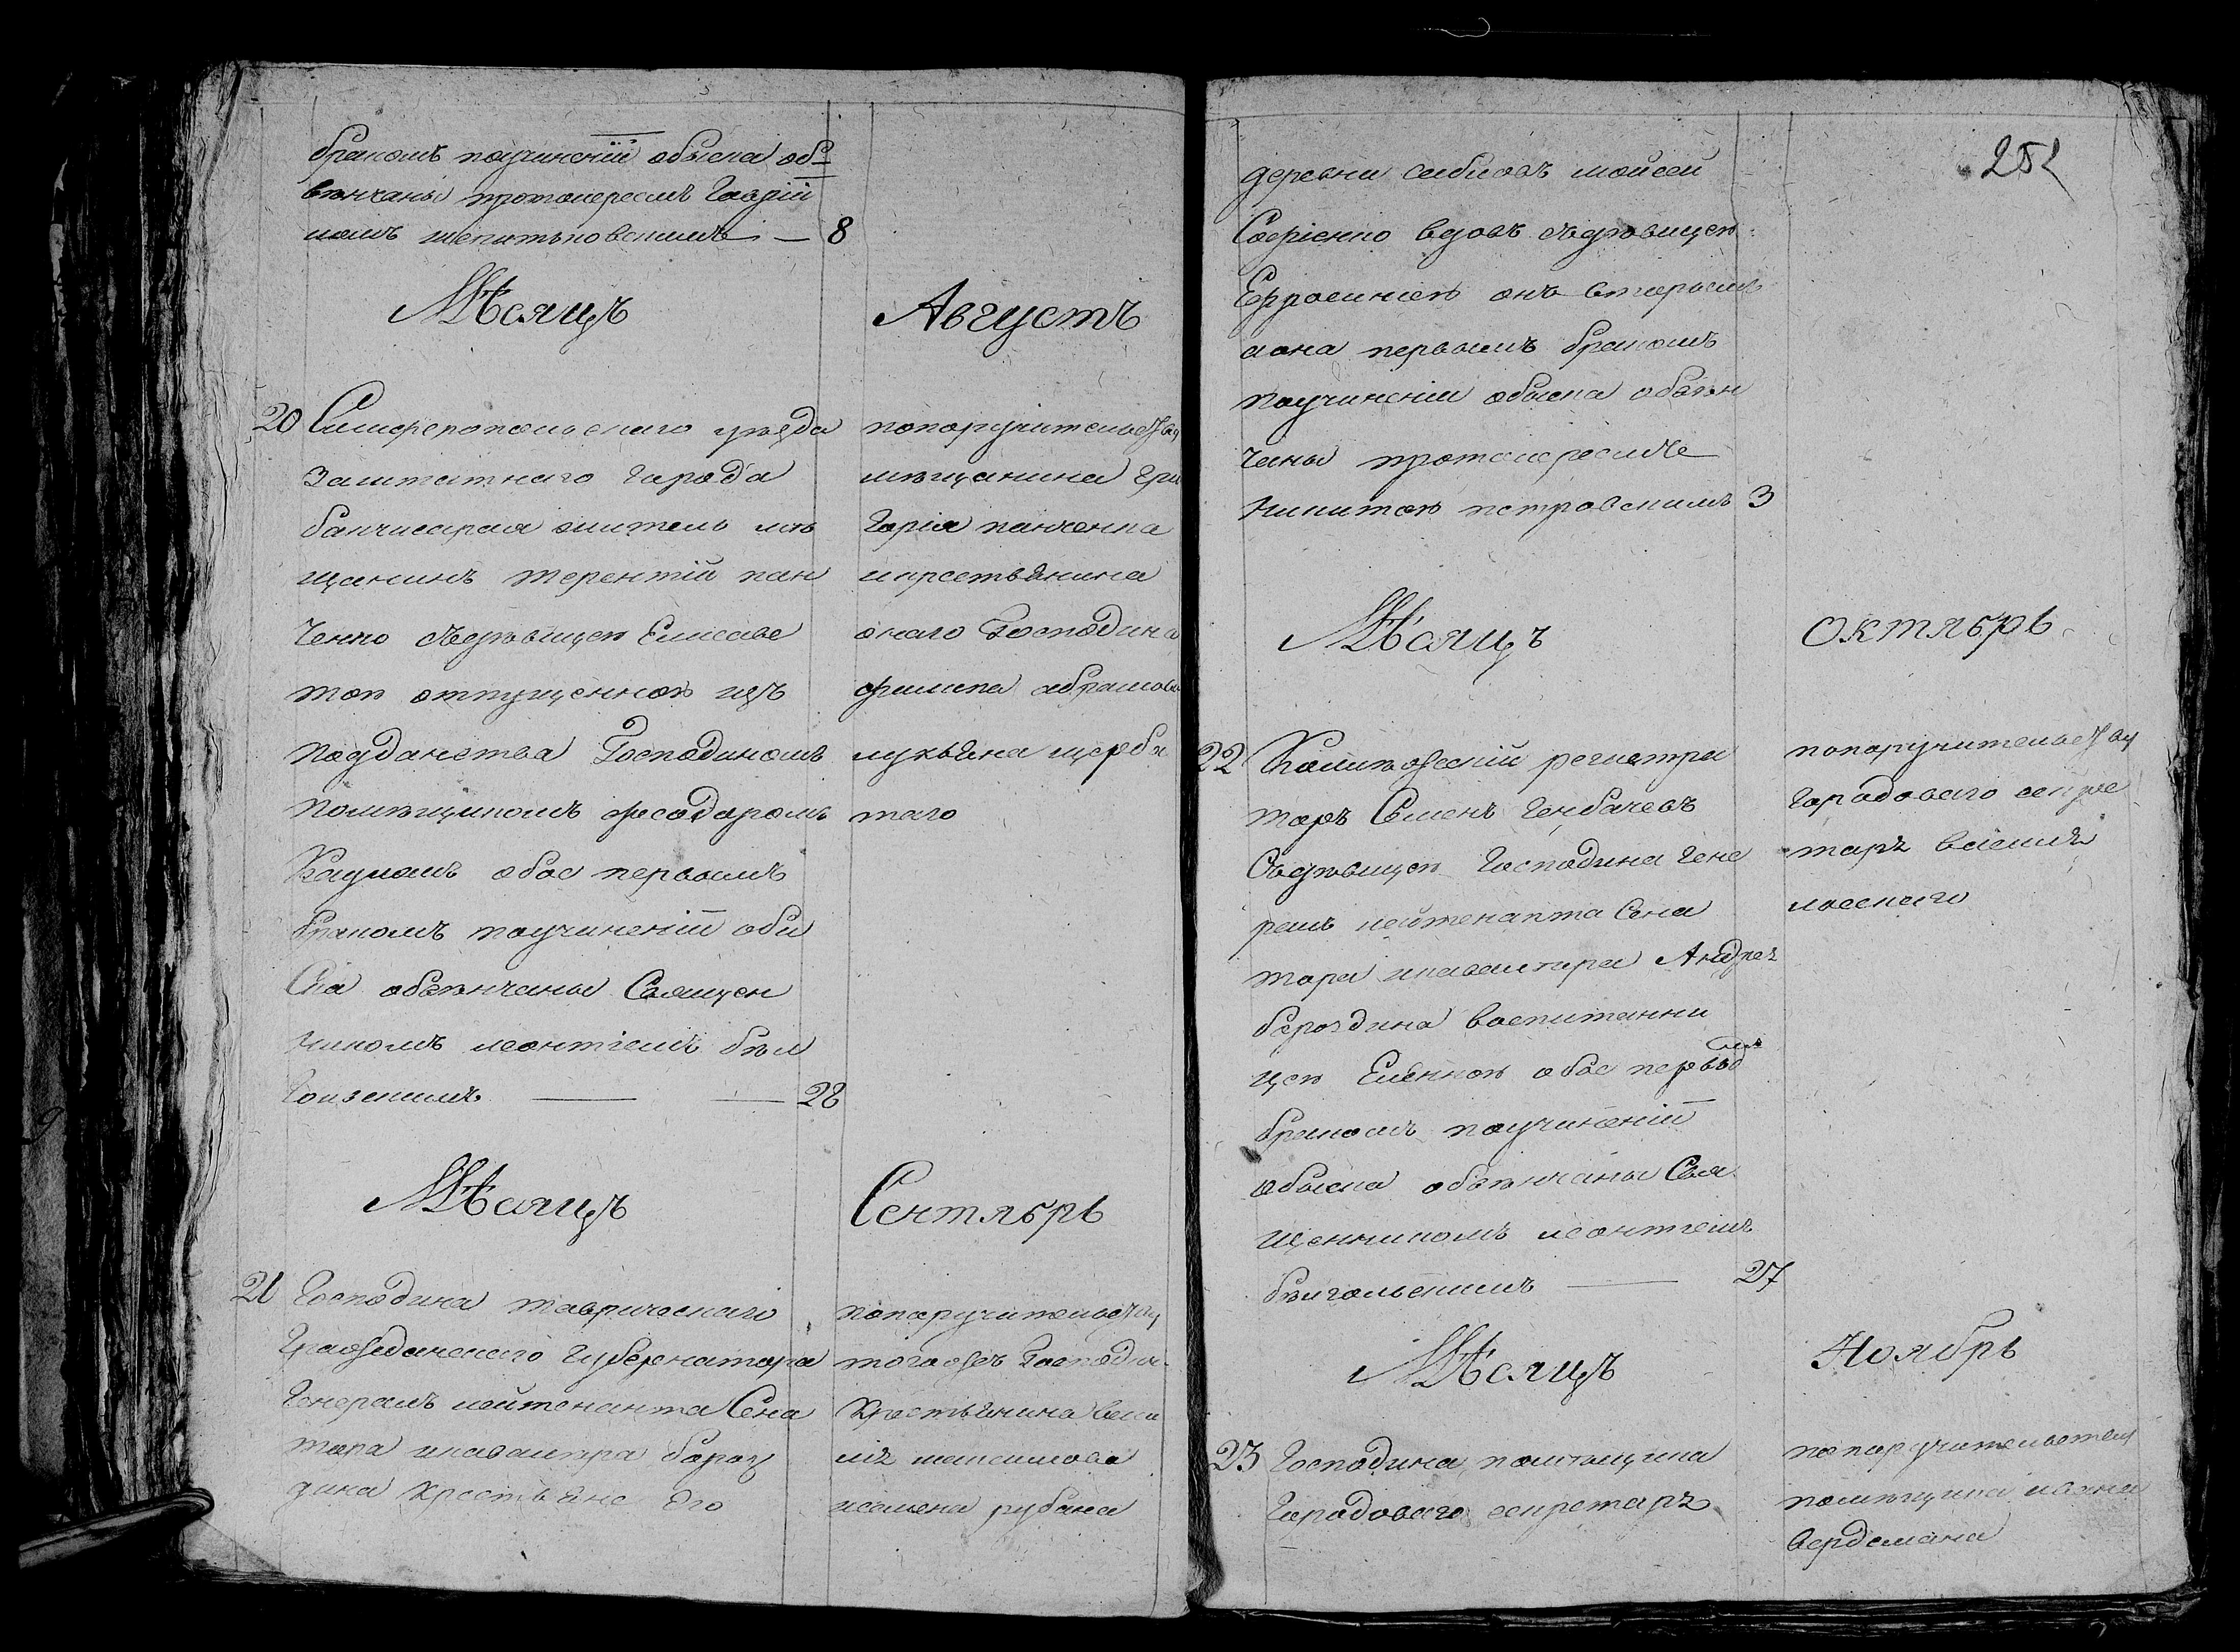 бракомъ поучиненіи обыска об
вѣнчаны протоиереемъ Гаврій
ломъ шепитьковскимъ — 8
Мѣсяцъ Августъ
20 Симферопольскаго уѣзда
заштатнаго города
бакчисарая житель мѣ
щанинъ терентій пан
ченко сдѣвицею Елисаве
тою отпущенною изъ
подданства Господиномъ
помѣщикомъ феодоромъ
обое первымъ
бракомъ поучиненіи обы
ска обвѣнчаны Священ
никомъ леонтіемъ бѣл
28
попоручительству
мѣщанина гри
горія панченка
икрестьянина
онаго Господина
филипа абрамова
лукьяна щерба
таго
Мѣсяцъ Сентябрь
21 Господина таврическаго
Гражданскаго Губернатора
Генералъ лейтенанта Сена
тора икавалтра бороз
дина крестьяне его
попоручительству
тогожъ Господина
Крестьянина васи
лія максимова
исемена рубана
251
деревни сабловъ мойсей
вдовъ сдѣвицею
Ефросиніею онъ вторымъ
аона первымъ бракомъ
поучиненіи обыска обвѣн
чаны протоиереемъ
никитою петровскимъ 3
Мѣсяцъ Октябрь
22 Колижскій регистра
торъ Семенъ Генбачевъ
Сдѣвицею Господина гене
ралъ лейтенанта Сена
тора икавалтера Андрея
бороздина воспитанни
цею Еленною обое первымъ
бракомъ поучиненіи
обыска обвѣнчаны Свя
щенникомъ леонтіемъ
бѣлгольскимъ — 27
попоручительству
городоваго секре
таря василія
лосскаго
Мѣсяцъ Ноябрь
23 Господина помѣщика
Городоваго секретаря
попоручительству
помѣщика ивана
вердемана